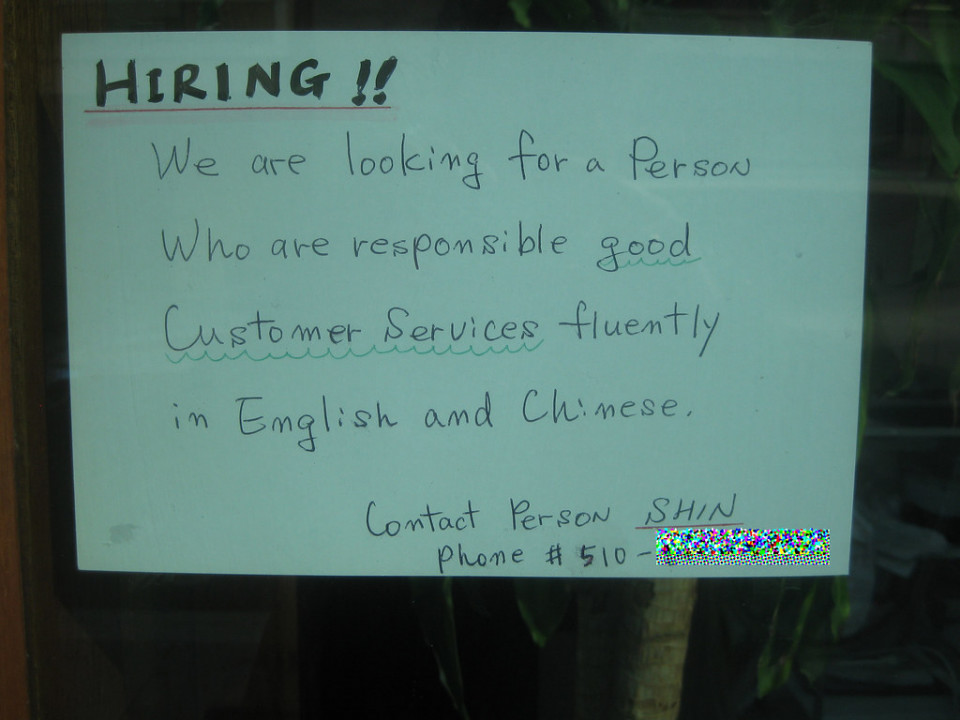 HIRING !!
We are looking for a Person
Who are responsible good
Customer Services fluently
in English and Chinese.
Contact Person SHIN
Phone # 510 -